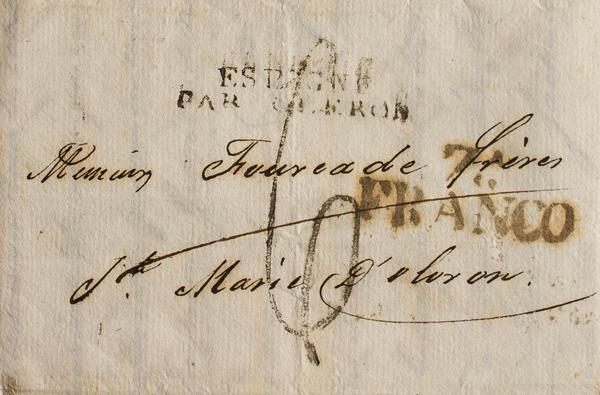 ESPAGNE
PAR OLERON
Messieurs Fourcade frères
FRANCO
Ste Marie D'oloron.
6